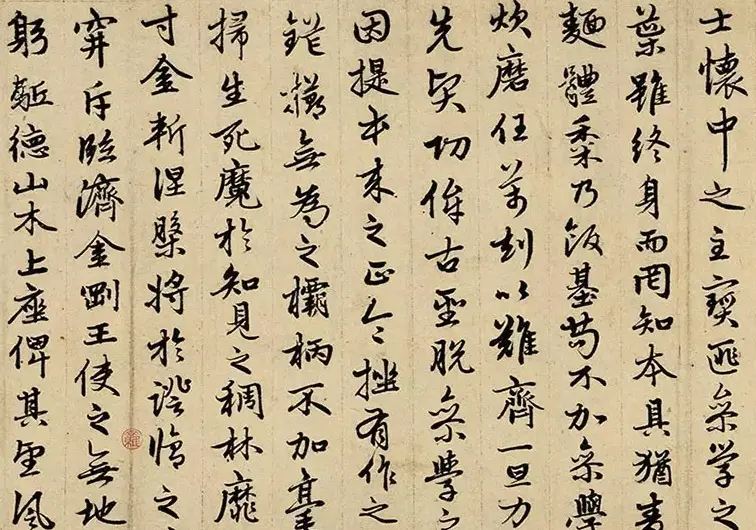 士懷中之主寶匪參學之
葉雖終身而罔知本具猶
麵體黍乃飯基苟不加參學
炊磨任萬刦以難齊一旦力
先契切侔古聖脫參學之
因提本來之正令挫有作之
鎚擲無為之欛柄不加毫
掃生死魔於知見之稠林靡
寸金斬涅槃將於證脩之
穽斥臨濟金剛王使之無地
躬德山木上座俾其望風